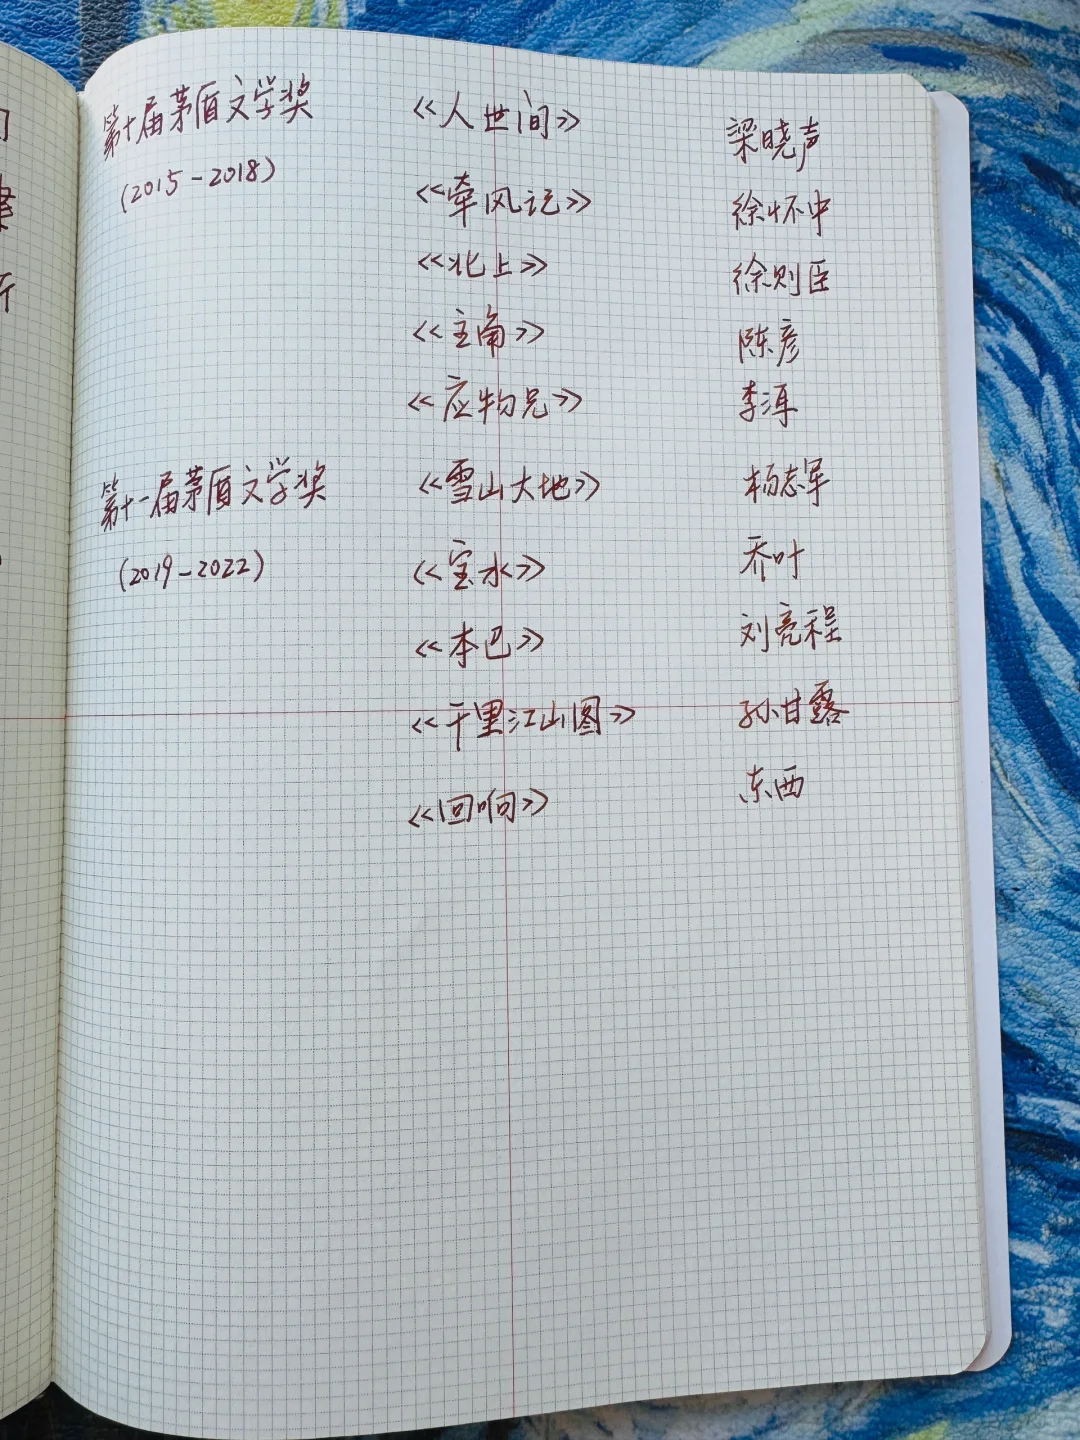 第十届茅盾文学奖 《人世间》 梁晓声
(2015-2018)
《牵风记》 徐怀中
《北上》 徐则臣
《主角》 陈彦
《应物兄》 李洱
第十一届茅盾文学奖 《雪山大地》 杨志军
(2019-2022) 《宝水》 乔叶
《本巴》 刘亮程
《千里江山图》 孙甘露
《回响》 东西